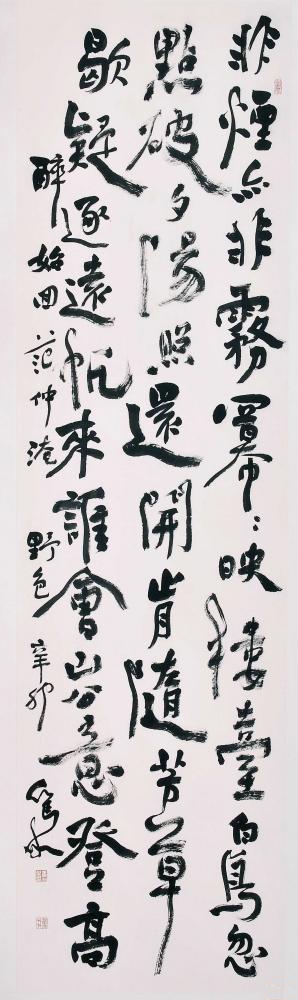 非煙亦非霧冪〻映樓臺白鳥忽
點破夕陽照還開肯隨芳草
歇疑逐遠帆來誰會山公意登高
醉始回 范仲淹 野色 辛卯